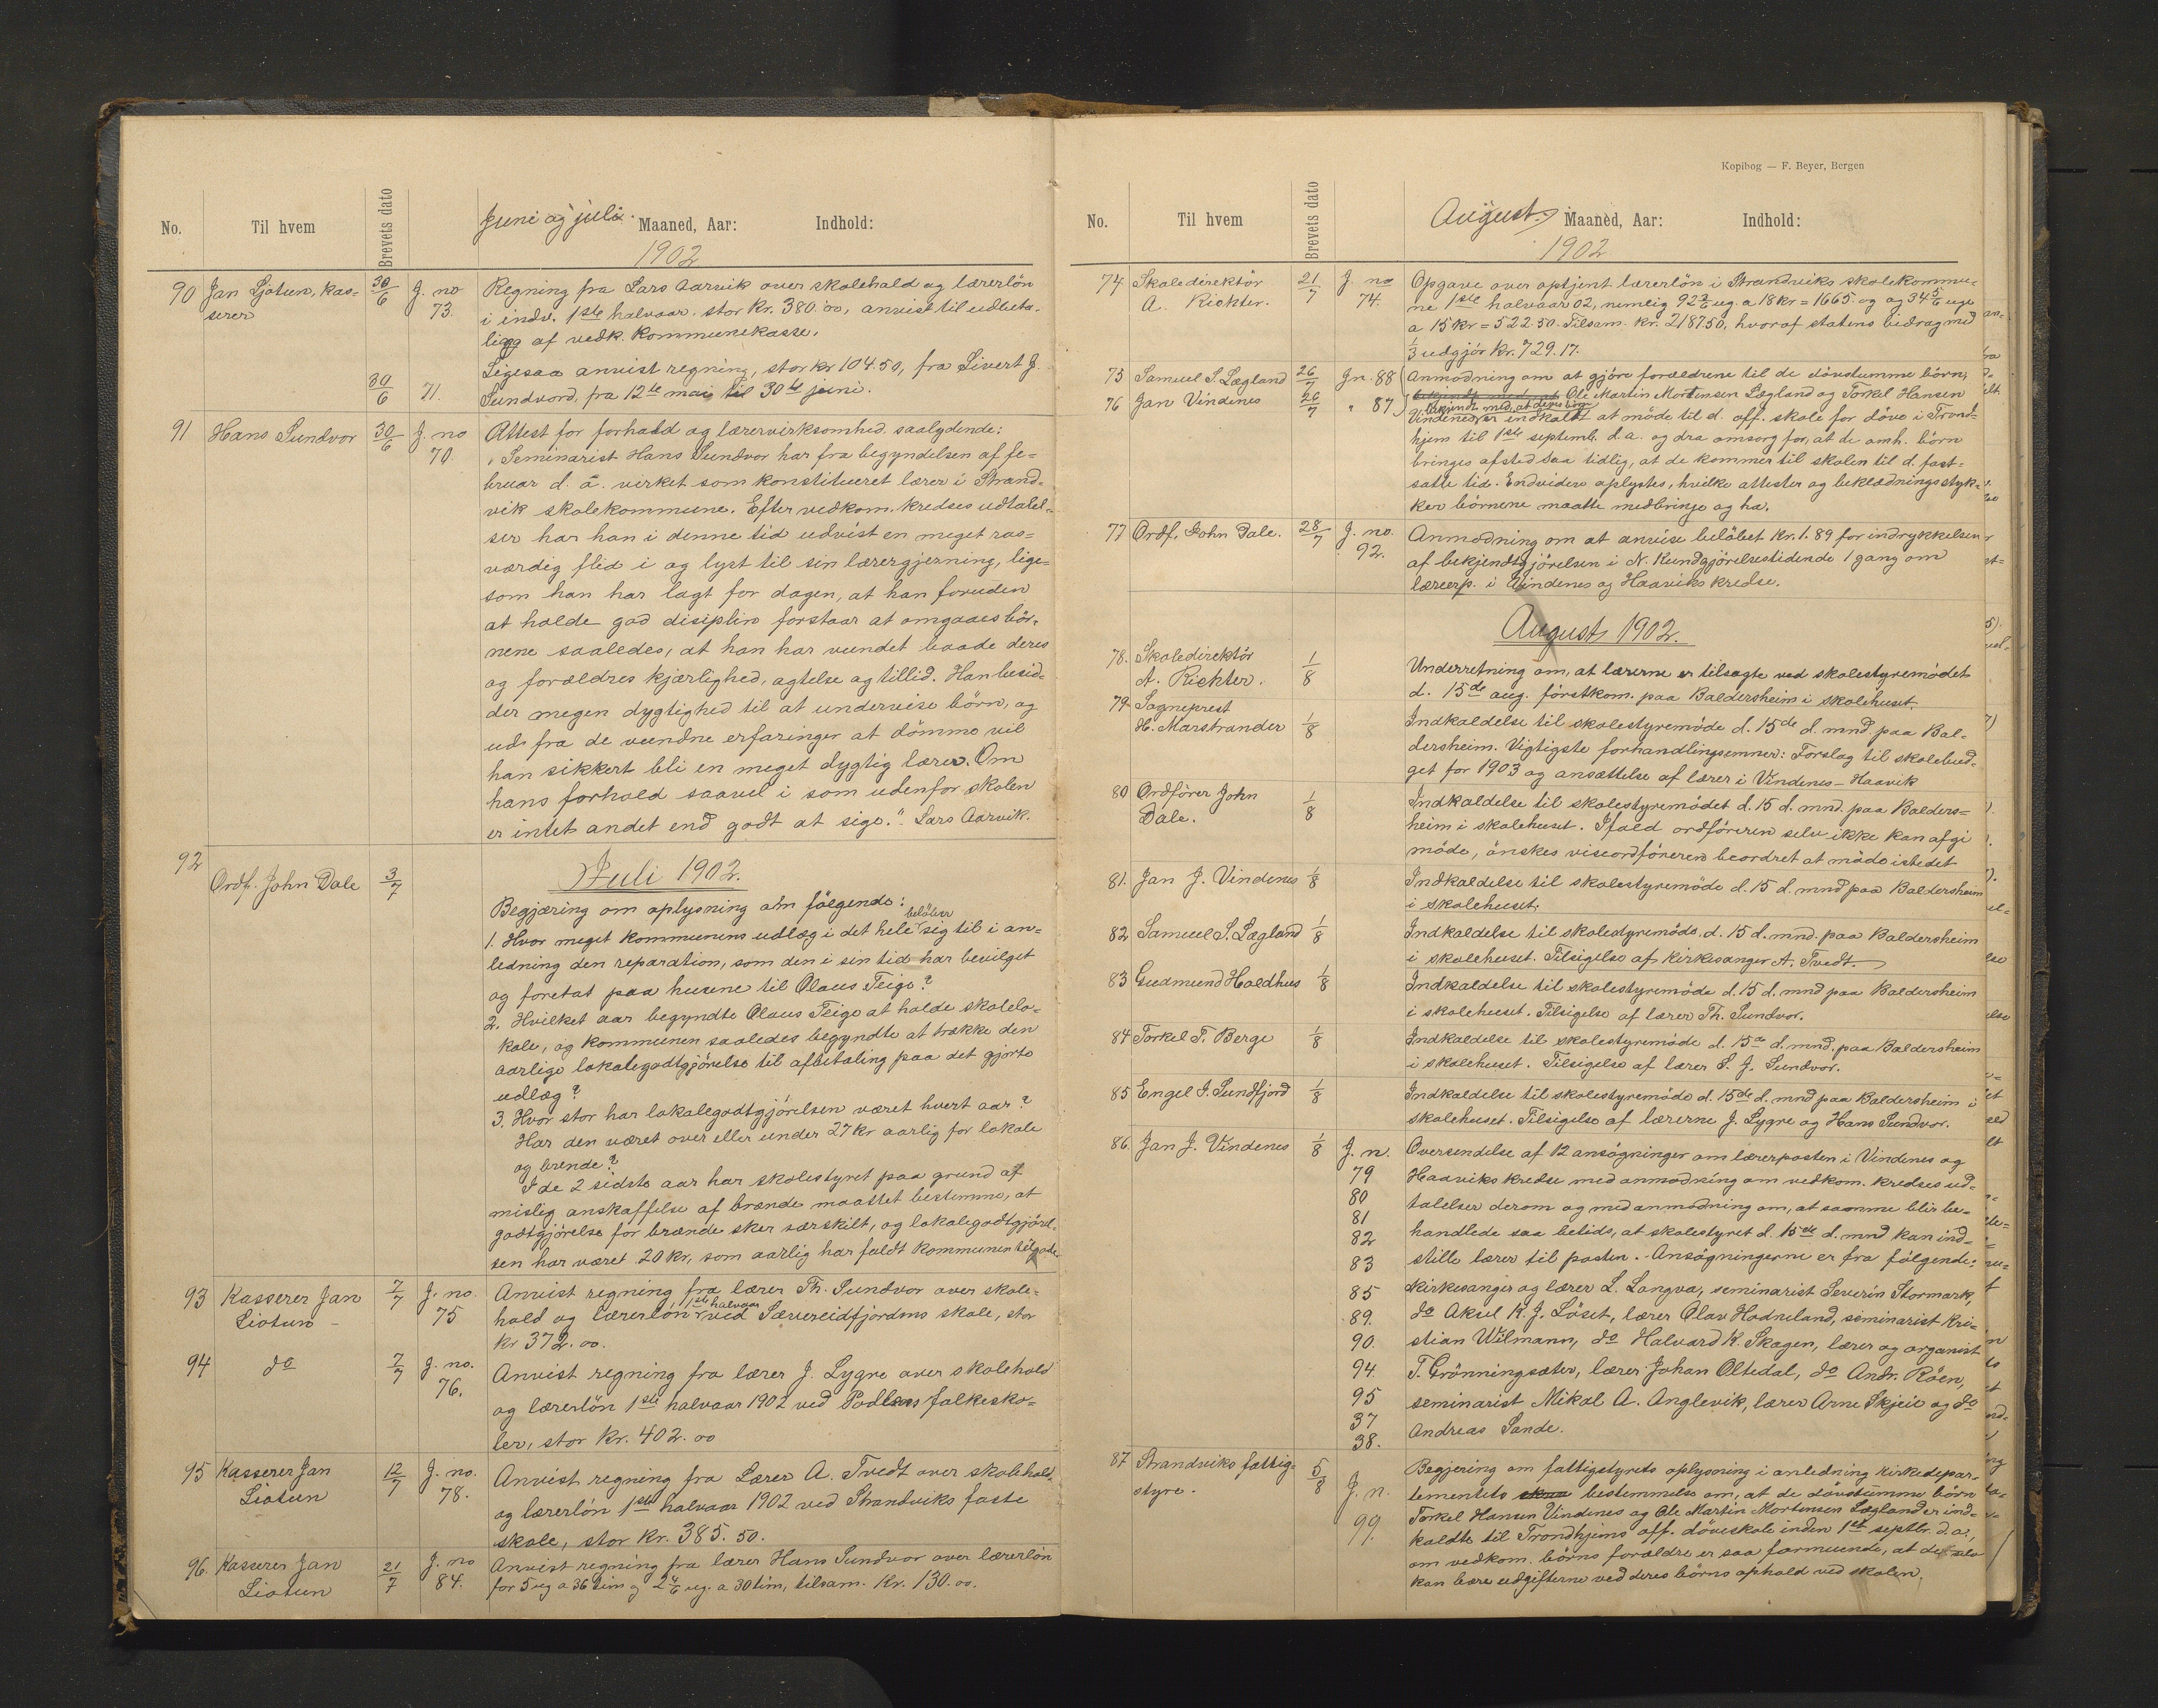 No.
Til hvem
Brevets dato
Juni og juli.
Maaned, Aar:
Indhold:
1902
90 Jan Ljotun, kas-
serer
30/6
J. no
73.
Regning fra Lars Aarvik over skolehold og lærerlön
i indv. 1ste halvaar, stor kr. 380.oo, anvist til udbeta-
ling af vedk. kommunekasse.
30/6
71.
Ligesaa anvist regning, stor kr 104.50, fra Sivert J.
Sundvord, fra 12te mai til 30te juni.
91 Hans Sundvor
30/6
J. no
70.
Attest for forhold og lærervirksomhed saalydende:
"Seminarist Hans Sundvor har fra begyndelsen af fe-
bruar d. a. virket som konstitueret lærer i Strand-
vik skolekommune. Efter vedkom. kredses udtalel-
ser har han i denne tid udvist en meget ros-
værdig flid i og lyst til sin lærergjerning, lige-
som han har lagt for dagen, at han foruden
at holde god disiplin forstaar at omgaaes bör-
nene saaledes, at han har vundet baade deres
og forældres kjærlighed, agtelse og tillid. Han besid-
der megen dygtighed til at undervise börn, og
ud fra de vundne erfaringer at dömme vil
han sikkert bli en meget dygtig lærer. Om
hans forhold saavel i som udenfor skolen
er intet andet end godt at sige." Lars Aarvik.
Juli 1902.
92
Ordf. John Dale
3/7
Begjæring om oplysning om fölgende:
1. Hvor meget kommunens udlæg i det hele belöber sig til i an-
ledning den reparation, som den i sin tid har bevilget
og foretat paa husene til Olaus Teige?
2. Hvilket aar begyndte Olaus Teige at holde skolelo-
kale, og kommunen saaledes begyndte at trække den
aarlige lokalegodtgjörelse til afbetaling paa det gjorte
udlæg?
3. Hvor stor har lokalegodtgjörelsen været hvert aar?
Har den været over eller under 27 kr aarlig for lokale
og brende?
I de 2 sidste aar har skolestyret paa grund af
mislig anskaffelse af brænde maattet bestemme, at
godtgjörelse for brænde sker særskilt, og lokalegodtgjörel-
sen har været 20 kr, som aarlig har faldt kommunen tilgode
93 Kasserer Jan
Liotun -
7/7
J. no.
75
Anvist regning fra lærer Th. Sundvor over skole-
hold og lærerlön 1ste halvaar ved Sævereidfjordens skole, stor
kr 372.oo.
94 do
7/7
J. no.
76.
Anvist regning fra lærer J. Lygre over skolehold
og lærerlön 1ste halvaar 1902 ved Podlens folkesko-
ler, stor kr. 402.oo
95 Kasserer Jan
Liotun
12/7
J. no.
78.
Anvist regning fra Lærer A. Tvedt over skolehold
og lærerlön 1ste halvaar 1902 ved Strandviks faste
skole, stor kr. 385.50.
96. Kasserer Jan
Liotun
21/7
J. no
84.
Anvist regning fra lærer Hans Sundvor over lærerlön
for 5 ug a 36 tim og 2 4/6 ug. a 30 tim, tilsam. kr. 130.oo.
Kopibog — F. Beyer, Bergen
No.
Til hvem
Brevets dato
August.
Maaned, Aar:
Indhold:
1902
74 Skoledirektör
A. Richter.
21/7
J. no
74.
Opgave over optjent lærerlön i Strandviks skolekommu-
ne 1ste halvaar 02, nemlig 92 3/6 ug. a 18 kr = 1665 og og 34 5/6 uge
a 15 kr = 522.50. Tilsam. kr. 2187.50, hvoraf statens bidrag med
1/3 udgjör kr. 729.17.
75 Samuel S. Lægland
26/7
Jn. 88
76 Jan Vindenes
26/7
" 87
Anmodning om at gjöre forældrene til de dövstumme börn,
Ole Martin Mortensen Lægland og Torkel Hansen
Vindenes, bekjendt med, at deres börn er indkaldt at möde til d. off. skole for döve i Trond-
hjem til 1ste septemb. d. a. og dra omsorg for, at de omh. börn
bringes afsted saa tidlig, at de kommer til skolen til d. fast-
satte tid. Endvidere oplystes, hvilke attester og beklædningsstyk-
ker börnene maatte medbringe og ha.
77 Ordf. John Dale.
28/7
J. no.
92.
Anmodning om at anvise belöbet kr. 1.89 for indrykkelsen
af bekjendtgjörelsen i N. Kundgjörelsestidende 1 gang om
lærerp. i Vindenes og Haaviks kredse.
August 1902.
78. Skoledirektör
A. Richter.
1/8
Underretning om, at lærerne er tilsagte ved skolestyremödet
d. 15de aug. förstkom. paa Baldersheim i skolehuset.
79 Sogneprest
H. Marstrander
1/8
Indkaldelse til skolestyremöde d. 15de d. mnd. paa Bal-
dersheim. Vigtigste forhandlingsemner: Forslag til skolebud-
get for 1903 og ansættelse af lærer i Vindenes-Haavik
80 Ordförer John
Dale.
1/8
Indkaldelse til skolestyremödet d. 15 d. mnd. paa Balders-
heim i skolehuset. Ifald ordföreren selv ikke kan afgi
möde, önskes viseordföreren beordret at möde istedet
81. Jan J. Vindenes
1/8
Indkaldelse til skolestyremöde d. 15 d. mnd paa Baldersheim
i skolehuset.
82 Samuel S. Lægland
1/8
Indkaldelse til skolestyremöde d. 15 d. mnd. paa Baldersheim
i skolehuset. Tilsigelse af kirkesanger A. Tvedt.
83 Gudmund Haldhus
1/8
Indkaldelse til skolestyremöde d. 15 d. mnd paa Baldersheim
i skolehuset. Tilsigelse af lærer Th. Sundvor.
84 Torkel T. Berge
1/8
Indkaldelse til skolestyremöde d. 15de d. mnd. paa Baldersheim
i skolehuset. Tilsigelse af lærer S. J. Sundvor.
85 Engel J. Sundfjord
1/8
Indkaldelse til skolestyremöde d. 15de d. mnd paa Baldersheim i
skolehuset. Tilsigelse af lærerne J. Lygre og Hans Sundvor.
86 Jan J. Vindenes
1/8
J. n.
79
80
81
82
83
85
89.
90.
94.
95
37
38.
Oversendelse af 12 ansögninger om lærerposten i Vindenes og
Haaviks kredse med anmodning om vedkom. kredses ud-
talelser derom og med anmodning om, at saamme blir be-
handlede saa betids, at skolestyret d. 15de d. mnd kan ind-
stille lærer til posten. - Ansögningerne er fra fölgende:
kirkesanger og lærer L. Langva, seminarist Severin Stormark,
do Aksel K. J. Löset, lærer Olav Hodneland, seminarist Kri-
stian Wilmann, do Halvard K. Skagen, lærer og organist
T. Grönningsæter, lærer Johan Oltedal, do Andr. Röen,
seminarist Mikal A. Anglevik, lærer Arne Skjeie og do
Andreas Sande.
87 Strandviks fattig-
styre.
5/8
J. n.
99.
Begjering om fattigstyrets oplysning i anledning kirkedepar-
tementets bestemmelse om, at de dövstumme börn
Torkel Hansen Vindenes og Ole Martin Mortensen Lægland er ind-
kaldte til Trondhjems off. döveskole inden 1ste septbr. d. a.,
om vedkom. börns forældre er saa formuende, at de selv
kan bære udgifterne ved deres börns ophold ved skolen.